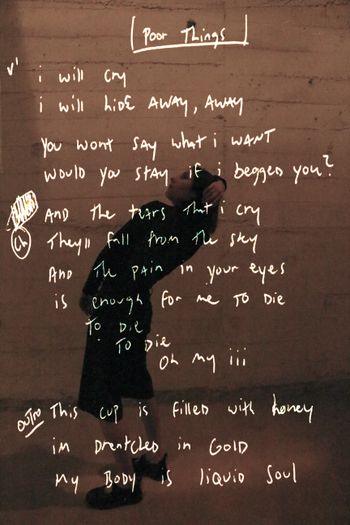 [Poor Things]
V1
i will cry
i will hide away, away
you wont say what i want
would you stay if i begged you?
And the tears that i cry
Ch
They'll fall from the sky
And the pain in your eyes
is enough for me to die
To die
To die
Oh my iii
outro
This cup is filled with honey
im drentched in Gold
my Body is liquid soul